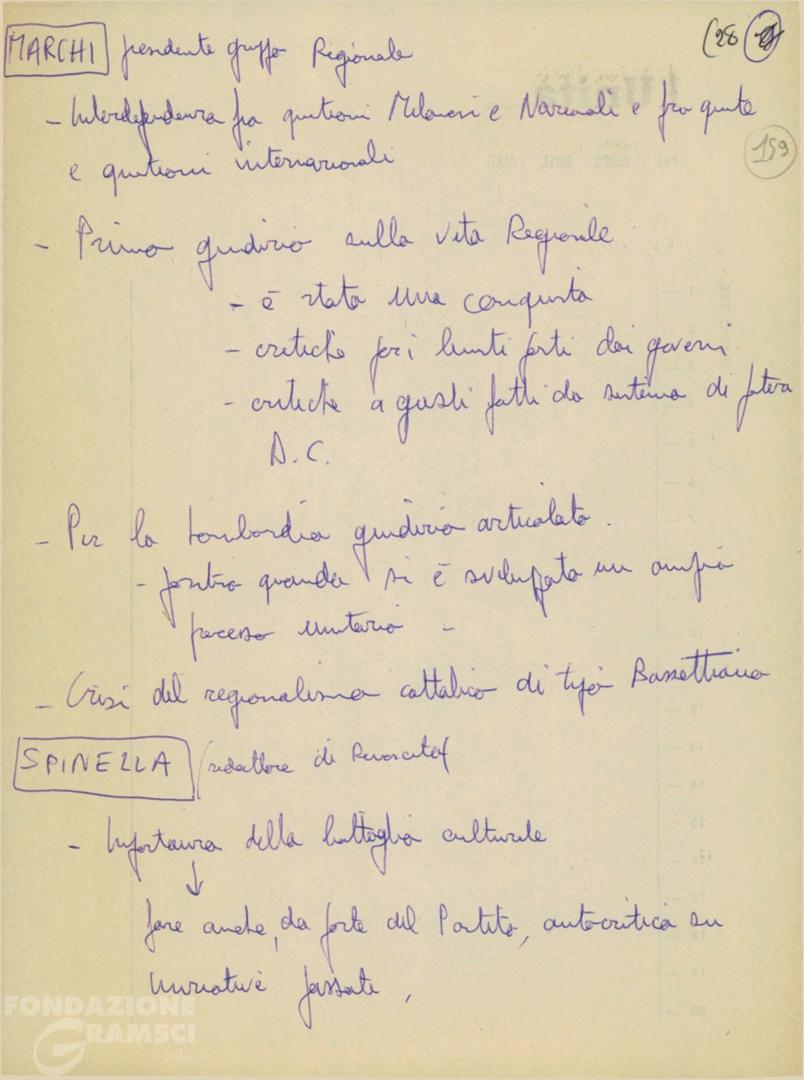 MARCHI presidente gruppo Regionale
(28
159
- Interdipendenza fra questioni Milanesi e Nazionali e fra queste
e questioni internazionali
- Primo giudizio sulla vita Regionale
- è stata una conquista
- critiche per i limiti posti dai governi
- critiche a guasti fatti da sistema di potere
D.C.
- Per la Lombardia giudizio articolato.
- positivo quando si è sviluppato un ampio
processo unitario -
- Crisi del regionalismo cattolico di tipo Bassettiano
SPINELLA (redattore di Rinascita)
- Importanza della battaglia culturale
↓
fare anche, da parte del Partito, autocritica su
iniziative passate,
FONDAZIONE
GRAMSCI
onlus